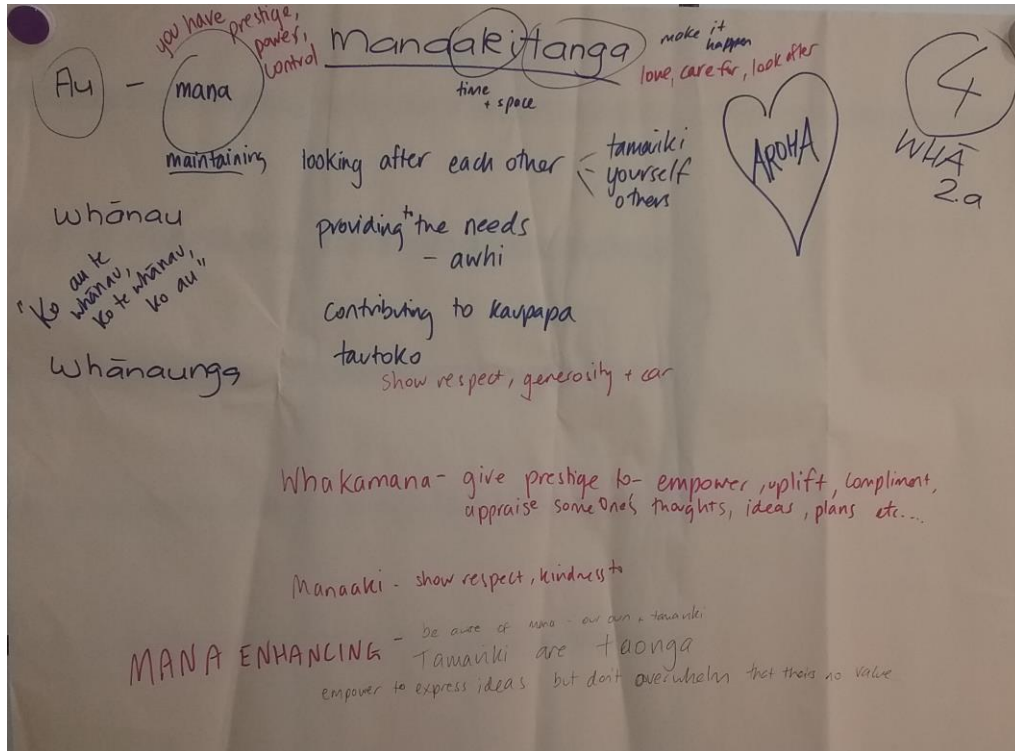 you have prestige, power, control
Manaakitanga
make it happen
love, care for, look after
4
WHĀ
2.a
Au - mana
time + space
AROHA
maintaining
looking after each other
tamariki
yourself
others
whānau
providing to the needs
- awhi
"Ko au te whānau,
Ko te whānau,
Ko au"
contributing to kaupapa
tautoko
whānaunga
show respect, generosity + car
Whakamana - give prestige to - empower, uplift, compliment,
appraise someone's thoughts, ideas, plans etc...
Manaaki - show respect, kindness to
MANA ENHANCING - be aware of mana - our own + tamariki
Tamariki are taonga
empower to express ideas but don't overwhelm that theirs no value